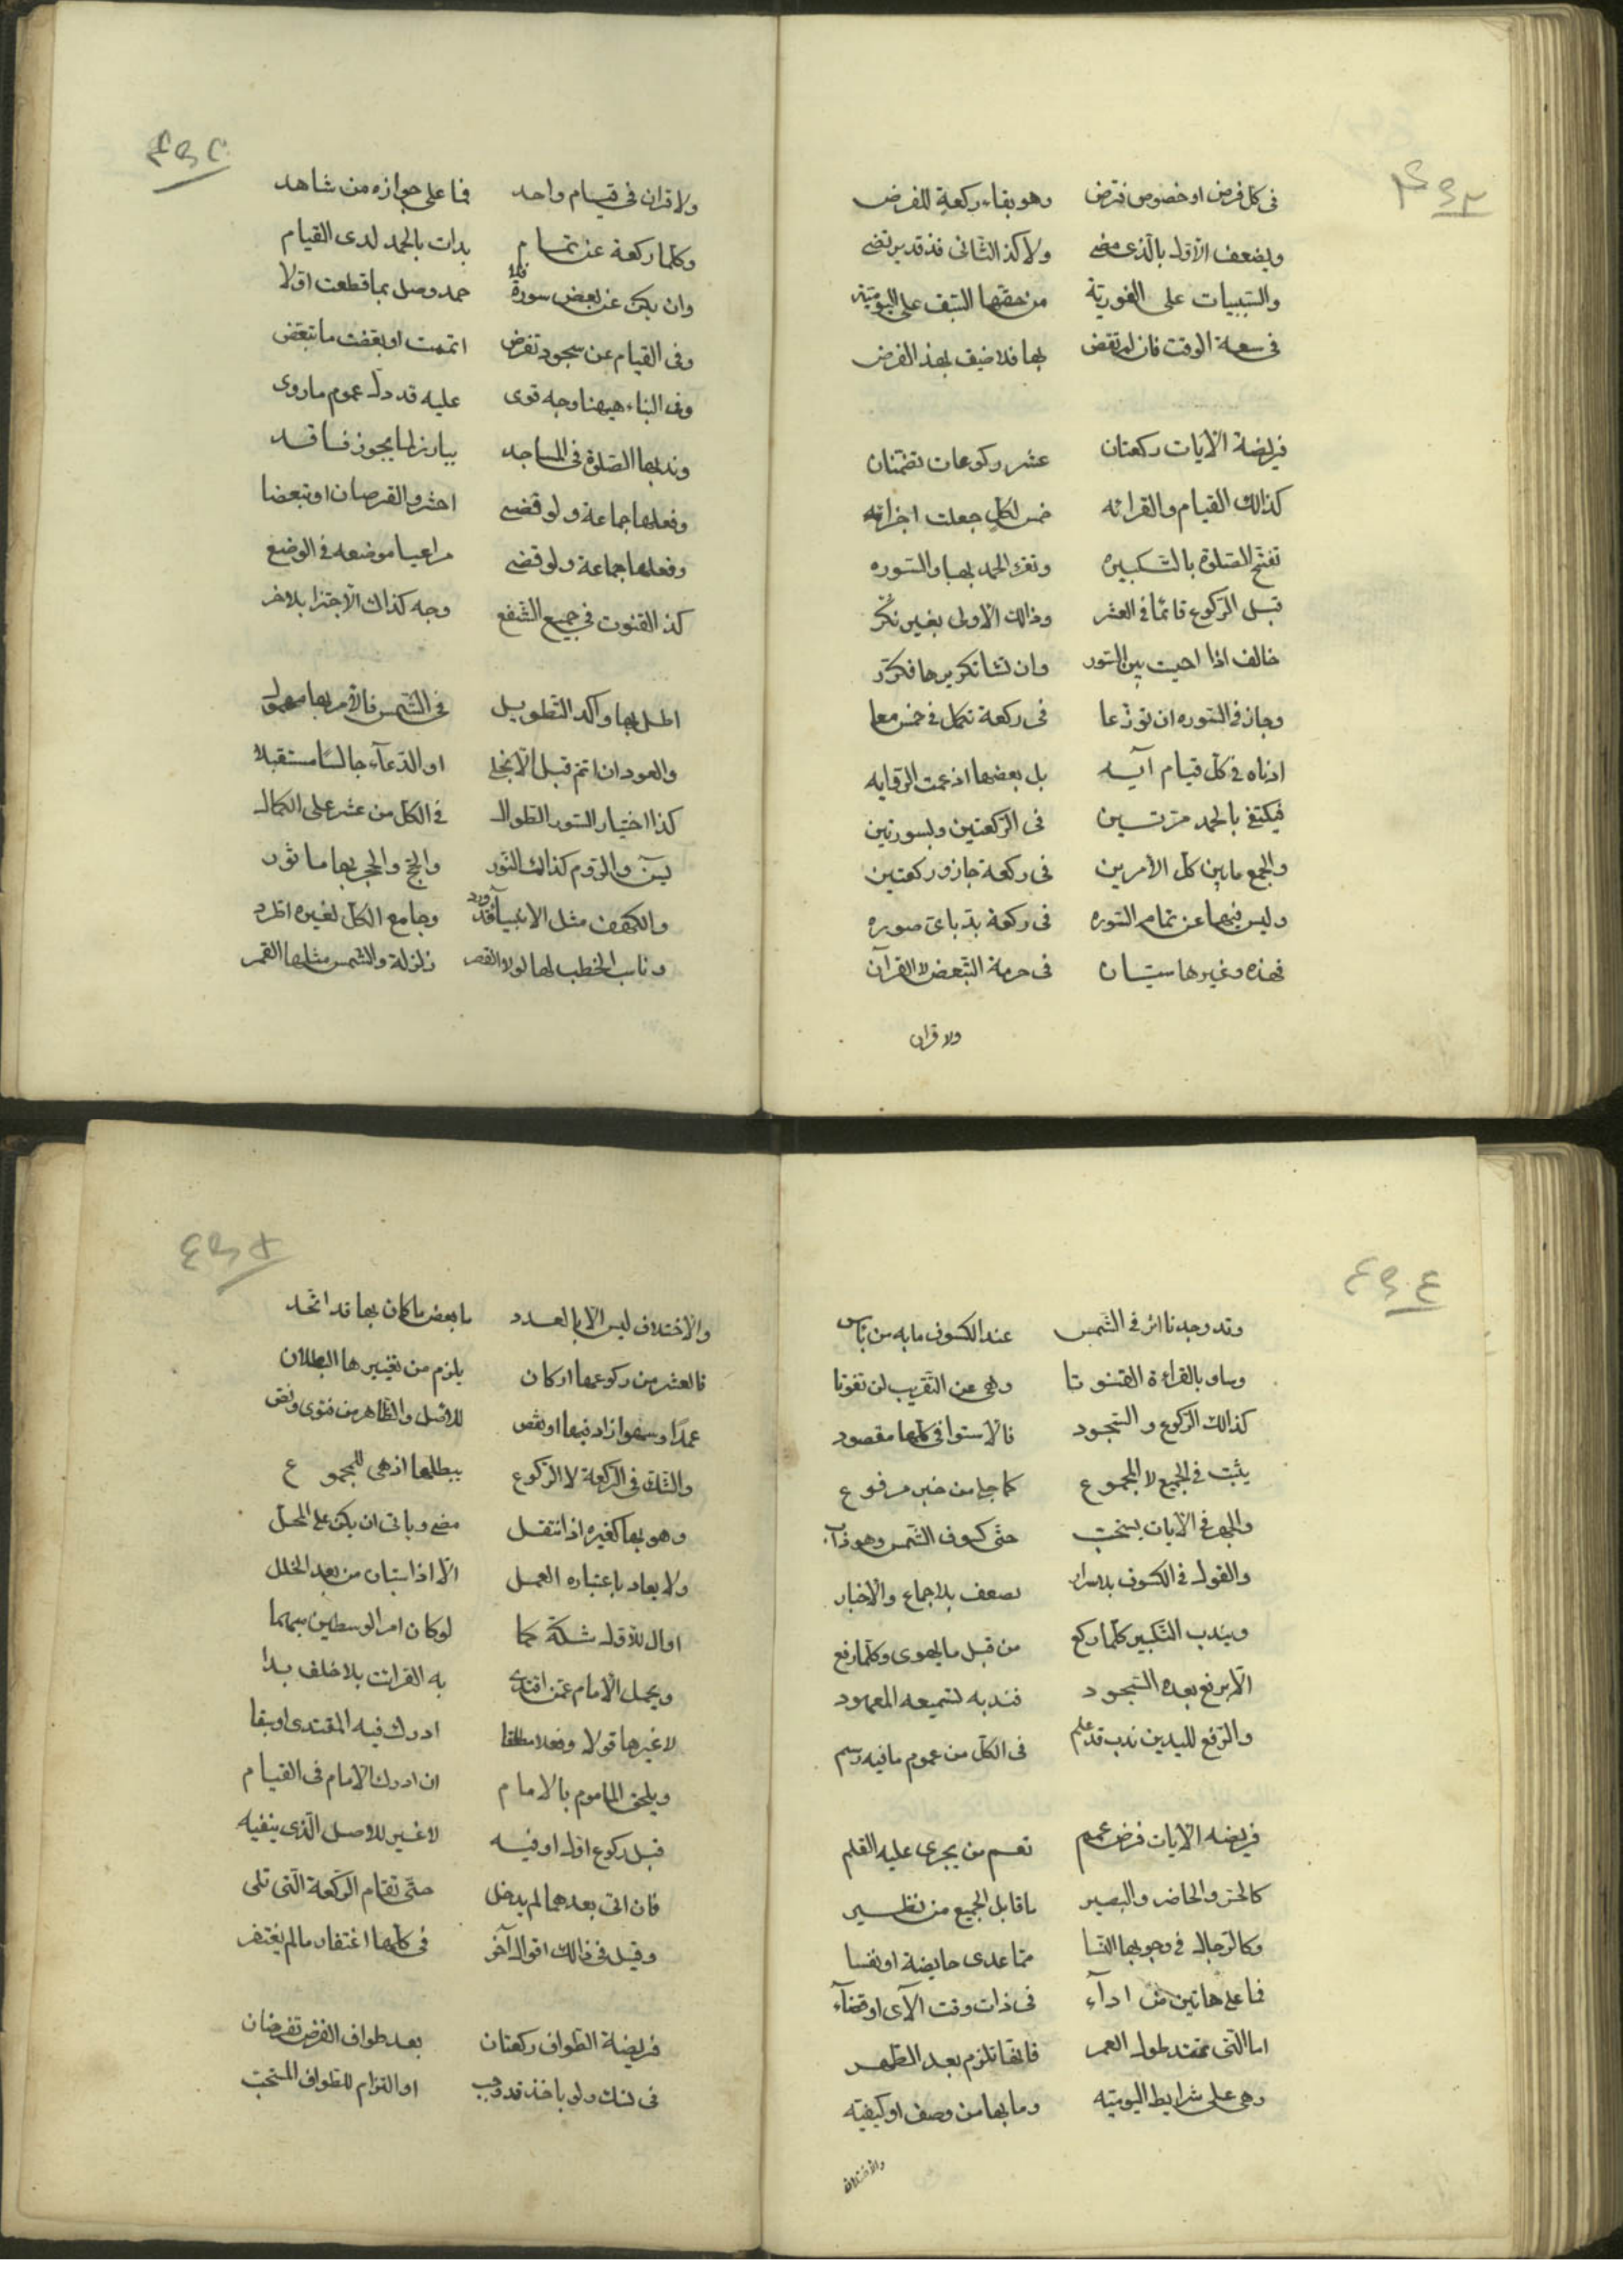 فى كل فرض او خصوص فترض وهو بقاء ركعة للفرض
ويضعف الاول بالذى مضى ولا كذ الثانى فذ قد يرتضى
والسببيات على الفورية من حقها السبق على اليومية
فى سعة الوقت فان لم تقض بها فلا ضيف بهذ الفرض
فريضة الآيات ركعتان عشر ركوعات تضمنان
كذالك القيام والقرائه خمس لكل جعلت اجزائه
تفتح الصلوة بالتكبيره وتقرء الحمد بها والسوره
قبل الركوع قائما فى العشر وذالك الاولى بغير نكر
خالف اذا احببت بين السور وان تشا تكريرها فكرر
وجاز فى السوره ان توزعا فى ركعة تكمل فى خمس معا
ادناه فى كل قيام آيه بل بعضها اذ عمت الروايه
فيكتفى بالحمد مرتين فى الركعتين وبسورتين
والجمع ما بين كل الأمرين فى ركعة جاز وركعتين
وليس فيها عن تمام السوره فى ركعة بد باى صوره
فهذه وغيرها سيان فى حرمة التبعض لا القران
ولا قران
ولا قران فى قيام واحد فما على جوازه من شاهد
وكلما ركعة عن تمام بدات بالحمد لدى القيام
وان يكن عن بعض سورة فلا حمد وصل بما قطعت اولا
وفى القيام عن سجود تفرض اتممت او بعضت ما تبعض
وفى البناء هيهنا وجه قوى عليه قد دل عموم ما روى
وندبها الصلوة فى المساجد
وفعلها جماعة ولو قضى احترو القرصان او تبعضا
وفعلها جماعة ولو قضى مراعيا موضعه فى الوضع
كذ القنوت فى جميع الشفع وجه كذاك الاجتزا بلاخر
اطل بها واكد التطويل فى الشمس فالأمر بها مهول
والعود ان اتم قبل الانجلى او الدعآء جالسا مستقبلا
كذا اختيار السور الطوال فى الكل من عشر على الكمال
يس والروم كذالك النور والحج والحجر بها ماثور
والكهف مثل الانبيا قد ورد وجامع الكل لغيره اطرد
وناب الخطب لها لولا القصر زلزلة والشمس مثلها القمر
وقد وجدنا اثر فى الشمس عند الكسوف ما به من باس
وساو بالقراءة القنوتا وهى عن التقريب لن تفوتا
كذالك الركوع والسجود فالاستوا فى كلها مقصود
يثبت فى الجميع لا المجموع كما جاء من خبر مرفوع
والجهر فى الآيات يستحب حتى كسوف الشمس وهو ذاب
والقول فى الكسوف بلاسرار يضعف بلاجماع والاخبار
ويندب التكبير كلما ركع من قبل ما يهوى وكلما رفع
الا برفع بعده السجود فندبه تسميعه المعهود
والرفع لليدين ندب قد علم فى الكل من عموم ما فيه رسم
فريضه الآيات فرض عمم تعم من يجرى عليه القلم
كالحر والحاضر والبصير ما قابل الجميع من نظير
وكالرجال فى وجوبها النسا مما عدى حايضة او نفسا
فما على هاتين من ادآء فى ذات وقت الآى او قضآء
اما التى تمتد طول العمر فانها تلزم بعد الطهر
وهى على شرايط اليومية وما بها من وصف او كيفيه
والاختلاف
والاختلاف ليس الا بالعدد ما بعض ما كان بها قد اتحد
فالعشر من ركوعها اركان يلزم من تغييرها البطلان
عمدا وسهوا زاد فيها او نقص للاصل والظاهر من فتوى ونص
والشك فى الركعة لا الركوع يبطلها اذ هى للمجموع
وهو بها كغيره اذ انتقل مضى وياتى ان يكن على المحل
ولا يعاد باعتباره العمل الا اذا استبان من بعد الخلل
او ال للاول شكه كما لو كان امر الوسطين مبهما
ويحمل الامام عمن اقتدى به القرائت بلا خلف بدا
لا غيرها قولا وفعلا مطلقا ادرك فيه المقتدى او سبقا
ويلحق الماموم بالامام ان ادرك الامام فى القيام
قبل ركوع اول او فيه لا غير للاصل الذى ينفيه
فان اتى بعدهما لم يدخل حتى تقام الركعة التى تلى
وقيل فى ذالك اقوال آخر فى كلها اغتفار ما لم يغتفر
فريضة الطواف ركعتان بعد طواف الفرض تفرضان
فى نسك ولو باخذ قد وجب او التزام للطواف المستحب